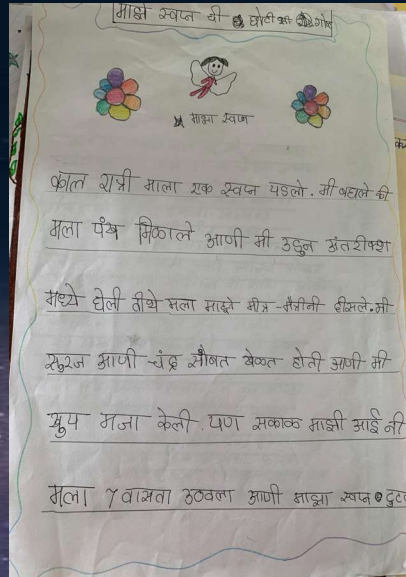 माझे स्वप्न ची छोटी शी गोष्ट
माझा स्वप्न
काल रात्री माला एक स्वप्न पडलो. मी बघले की
मला पंख मिळाले आणी मी उडुन अंतरीक्श
मध्ये घेली तीथे मला माझे मीत्र-मैत्रीनी दीसले. मी
सुरज आणी चंद्र सोबत खेळत होती आणी मी
खुप मजा केली. पण सकाळ माझी आई नी
मला 7 वासता उठवला आणी माझा स्वप्न